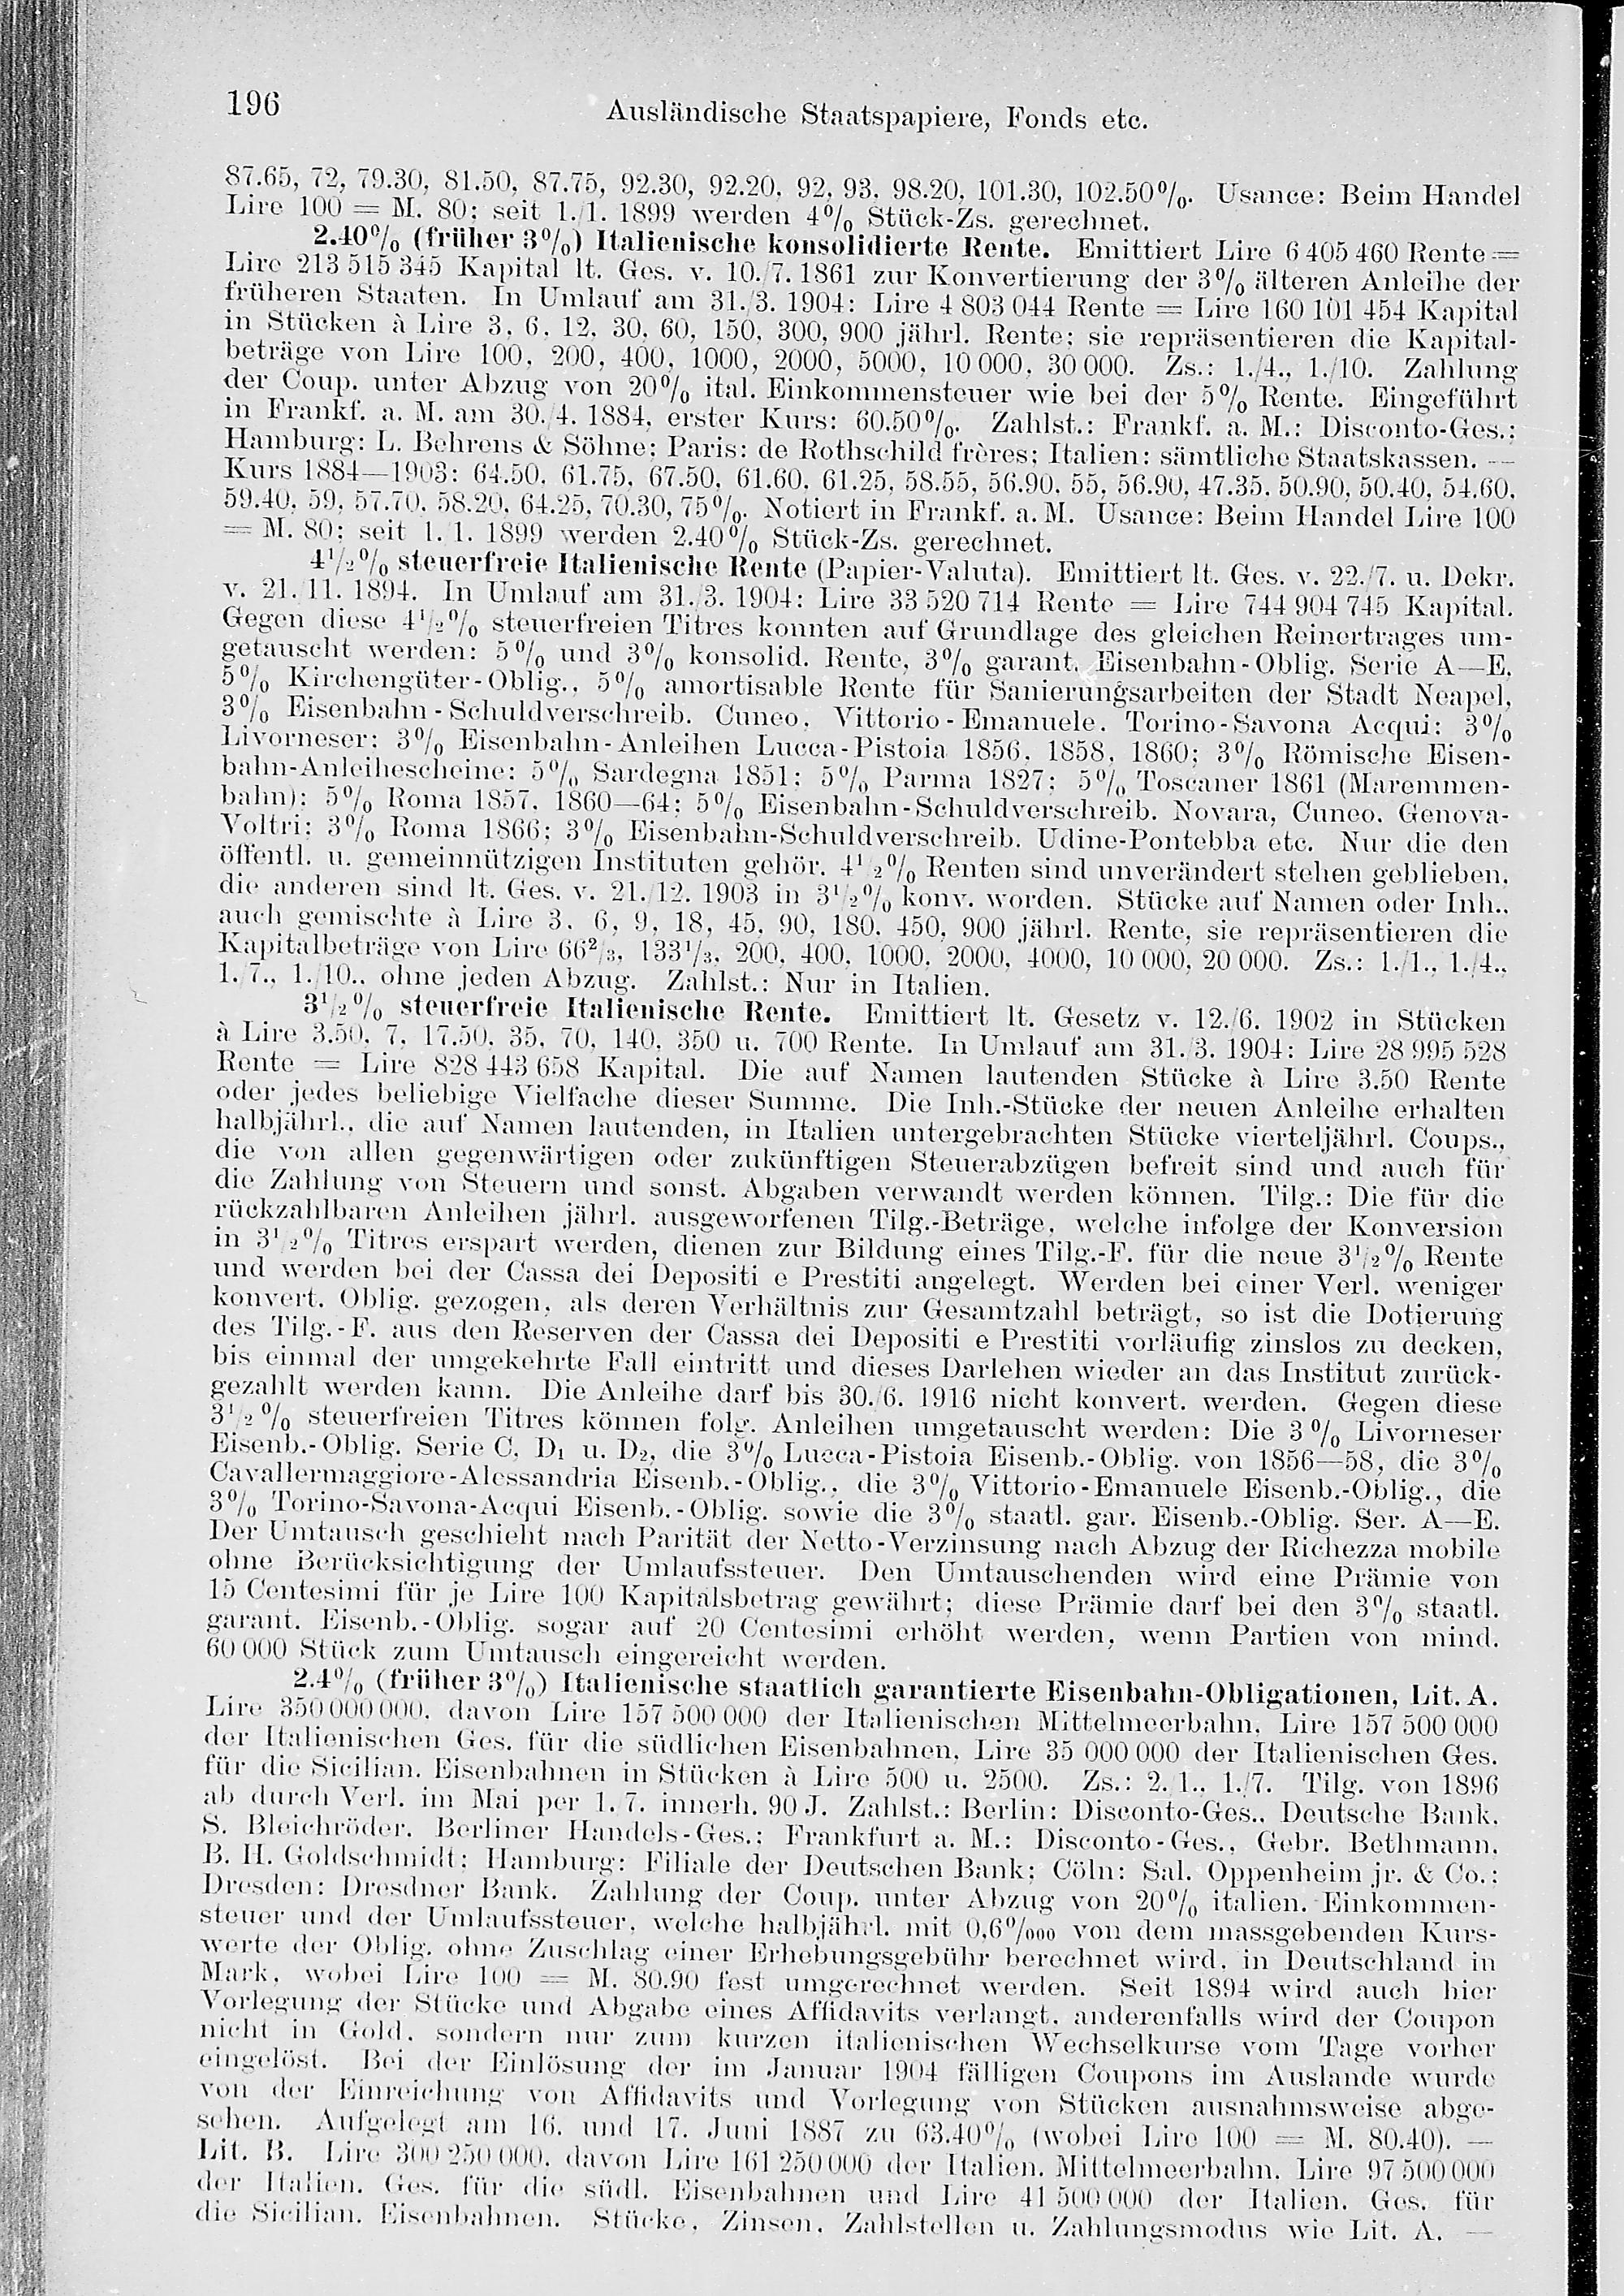 196
Ausländische Staatspapiere, Fonds etc.
87.65, 72, 79.30, 81.50, 87.75, 92.30, 92.20, 92, 93, 98.20, 101.30, 102.50%. Usance: Beim Handel
Lire 100 = M. 80; seit 1./1. 1899 werden 4% Stück-Zs. gerechnet.
2.40% (früher 3%) Italienische konsolidierte Rente. Emittiert Lire 6 405 460 Rente =
Lire 213 515 345 Kapital lt. Ges. v. 10./7. 1861 zur Konvertierung der 3% älteren Anleihe der
früheren Staaten. In Umlauf am 31./3. 1904: Lire 4 803 044 Rente = Lire 160 101 454 Kapital
in Stücken à Lire 3, 6, 12, 30, 60, 150, 300, 900 jährl. Rente; sie repräsentieren die Kapital-
beträge von Lire 100, 200, 400, 1000, 2000, 5000, 10 000, 30 000. Zs.: 1./4., 1./10. Zahlung
der Coup. unter Abzug von 20% ital. Einkommensteuer wie bei der 5% Rente. Eingeführt
in Frankf. a. M. am 30./4. 1884, erster Kurs: 60.50%. Zahlst.: Frankf. a. M.: Disconto-Ges.;
Hamburg: L. Behrens & Söhne; Paris: de Rothschild frères; Italien: sämtliche Staatskassen. —
Kurs 1884—1903: 64.50, 61.75, 67.50, 61.60, 61.25, 58.55, 56.90, 55, 56.90, 47.35, 50.90, 50.40, 54.60,
59.40, 59, 57.70, 58.20, 64.25, 70.30, 75%. Notiert in Frankf. a. M. Usance: Beim Handel Lire 100
= M. 80; seit 1./1. 1899 werden 2.40% Stück-Zs. gerechnet.
4½% steuerfreie Italienische Rente (Papier-Valuta). Emittiert lt. Ges. v. 22./7. u. Dekr.
v. 21./11. 1894. In Umlauf am 31./3. 1904: Lire 33 520 714 Rente = Lire 744 904 745 Kapital.
Gegen diese 4½% steuerfreien Titres konnten auf Grundlage des gleichen Reinertrages um-
getauscht werden: 5% und 3% konsolid. Rente, 3% garant. Eisenbahn-Oblig. Serie A—E,
5% Kirchengüter-Oblig., 5% amortisable Rente für Sanierungsarbeiten der Stadt Neapel,
3% Eisenbahn-Schuldverschreib. Cuneo, Vittorio-Emanuele, Torino-Savona Acqui; 3%
Livorneser; 3% Eisenbahn-Anleihen Lucca-Pistoia 1856, 1858, 1860; 3% Römische Eisen-
bahn-Anleihescheine; 5% Sardegna 1851; 5% Parma 1827; 5% Toscaner 1861 (Maremmen-
bahn); 5% Roma 1857, 1860—64; 5% Eisenbahn-Schuldverschreib. Novara, Cuneo, Genova-
Voltri; 3% Roma 1866; 3% Eisenbahn-Schuldverschreib. Udine-Pontebba etc. Nur die den
öffentl. u. gemeinnützigen Instituten gehör. 4½% Renten sind unverändert stehen geblieben,
die anderen sind lt. Ges. v. 21./12. 1903 in 3½% konv. worden. Stücke auf Namen oder Inh.,
auch gemischte à Lire 3, 6, 9, 18, 45, 90, 180, 450, 900 jährl. Rente, sie repräsentieren die
Kapitalbeträge von Lire 66⅔, 133⅓, 200, 400, 1000, 2000, 4000, 10 000, 20 000. Zs.: 1./1., 1./4.,
1./7., 1./10., ohne jeden Abzug. Zahlst.: Nur in Italien.
3½% steuerfreie Italienische Rente. Emittiert lt. Gesetz v. 12./6. 1902 in Stücken
à Lire 3.50, 7, 17.50, 35, 70, 140, 350 u. 700 Rente. In Umlauf am 31./3. 1904: Lire 28 995 528
Rente = Lire 828 443 658 Kapital. Die auf Namen lautenden Stücke à Lire 3.50 Rente
oder jedes beliebige Vielfache dieser Summe. Die Inh.-Stücke der neuen Anleihe erhalten
halbjährl., die auf Namen lautenden, in Italien untergebrachten Stücke vierteljährl. Coups.,
die von allen gegenwärtigen oder zukünftigen Steuerabzügen befreit sind und auch für
die Zahlung von Steuern und sonst. Abgaben verwandt werden können. Tilg.: Die für die
rückzahlbaren Anleihen jährl. ausgeworfenen Tilg.-Beträge, welche infolge der Konversion
in 3½% Titres erspart werden, dienen zur Bildung eines Tilg.-F. für die neue 3½% Rente
und werden bei der Cassa dei Depositi e Prestiti angelegt. Werden bei einer Verl. weniger
konvert. Oblig. gezogen, als deren Verhältnis zur Gesamtzahl beträgt, so ist die Dotierung
des Tilg.-F. aus den Reserven der Cassa dei Depositi e Prestiti vorläufig zinslos zu decken,
bis einmal der umgekehrte Fall eintritt und dieses Darlehen wieder an das Institut zurück-
gezahlt werden kann. Die Anleihe darf bis 30./6. 1916 nicht konvert. werden. Gegen diese
3½% steuerfreien Titres können folg. Anleihen umgetauscht werden: Die 3% Livorneser
Eisenb.-Oblig. Serie C, D₁ u. D₂, die 3% Lucca-Pistoia Eisenb.-Oblig. von 1856—58, die 3%
Cavallermaggiore-Alessandria Eisenb.-Oblig., die 3% Vittorio-Emanuele Eisenb.-Oblig., die
3% Torino-Savona-Acqui Eisenb.-Oblig. sowie die 3% staatl. gar. Eisenb.-Oblig. Ser. A—E.
Der Umtausch geschieht nach Parität der Netto-Verzinsung nach Abzug der Richezza mobile
ohne Berücksichtigung der Umlaufssteuer. Den Umtauschenden wird eine Prämie von
15 Centesimi für je Lire 100 Kapitalsbetrag gewährt; diese Prämie darf bei den 3% staatl.
garant. Eisenb.-Oblig. sogar auf 20 Centesimi erhöht werden, wenn Partien von mind.
60 000 Stück zum Umtausch eingereicht werden.
2.4% (früher 3%) Italienische staatlich garantierte Eisenbahn-Obligationen, Lit. A.
Lire 350 000 000, davon Lire 157 500 000 der Italienischen Mittelmeerbahn, Lire 157 500 000
der Italienischen Ges. für die südlichen Eisenbahnen, Lire 35 000 000 der Italienischen Ges.
für die Sicilian. Eisenbahnen in Stücken à Lire 500 u. 2500. Zs.: 2./1., 1./7. Tilg. von 1896
ab durch Verl. im Mai per 1./7. innerh. 90 J. Zahlst.: Berlin: Disconto-Ges., Deutsche Bank,
S. Bleichröder, Berliner Handels-Ges.; Frankfurt a. M.: Disconto-Ges., Gebr. Bethmann,
B. H. Goldschmidt; Hamburg: Filiale der Deutschen Bank; Cöln: Sal. Oppenheim jr. & Co.;
Dresden: Dresdner Bank. Zahlung der Coup. unter Abzug von 20% italien. Einkommen-
steuer und der Umlaufssteuer, welche halbjährl. mit 0,6⁰/₀₀₀ von dem massgebenden Kurs-
werte der Oblig. ohne Zuschlag einer Erhebungsgebühr berechnet wird, in Deutschland in
Mark, wobei Lire 100 = M. 80.90 fest umgerechnet werden. Seit 1894 wird auch hier
Vorlegung der Stücke und Abgabe eines Affidavits verlangt, anderenfalls wird der Coupon
nicht in Gold, sondern nur zum kurzen italienischen Wechselkurse vom Tage vorher
eingelöst. Bei der Einlösung der im Januar 1904 fälligen Coupons im Auslande wurde
von der Einreichung von Affidavits und Vorlegung von Stücken ausnahmsweise abge-
sehen. Aufgelegt am 16. und 17. Juni 1887 zu 63.40% (wobei Lire 100 = M. 80.40). —
Lit. B. Lire 300 250 000, davon Lire 161 250 000 der Italien. Mittelmeerbahn, Lire 97 500 000
der Italien. Ges. für die südl. Eisenbahnen und Lire 41 500 000 der Italien. Ges. für
die Sicilian. Eisenbahnen. Stücke, Zinsen, Zahlstellen u. Zahlungsmodus wie Lit. A. —